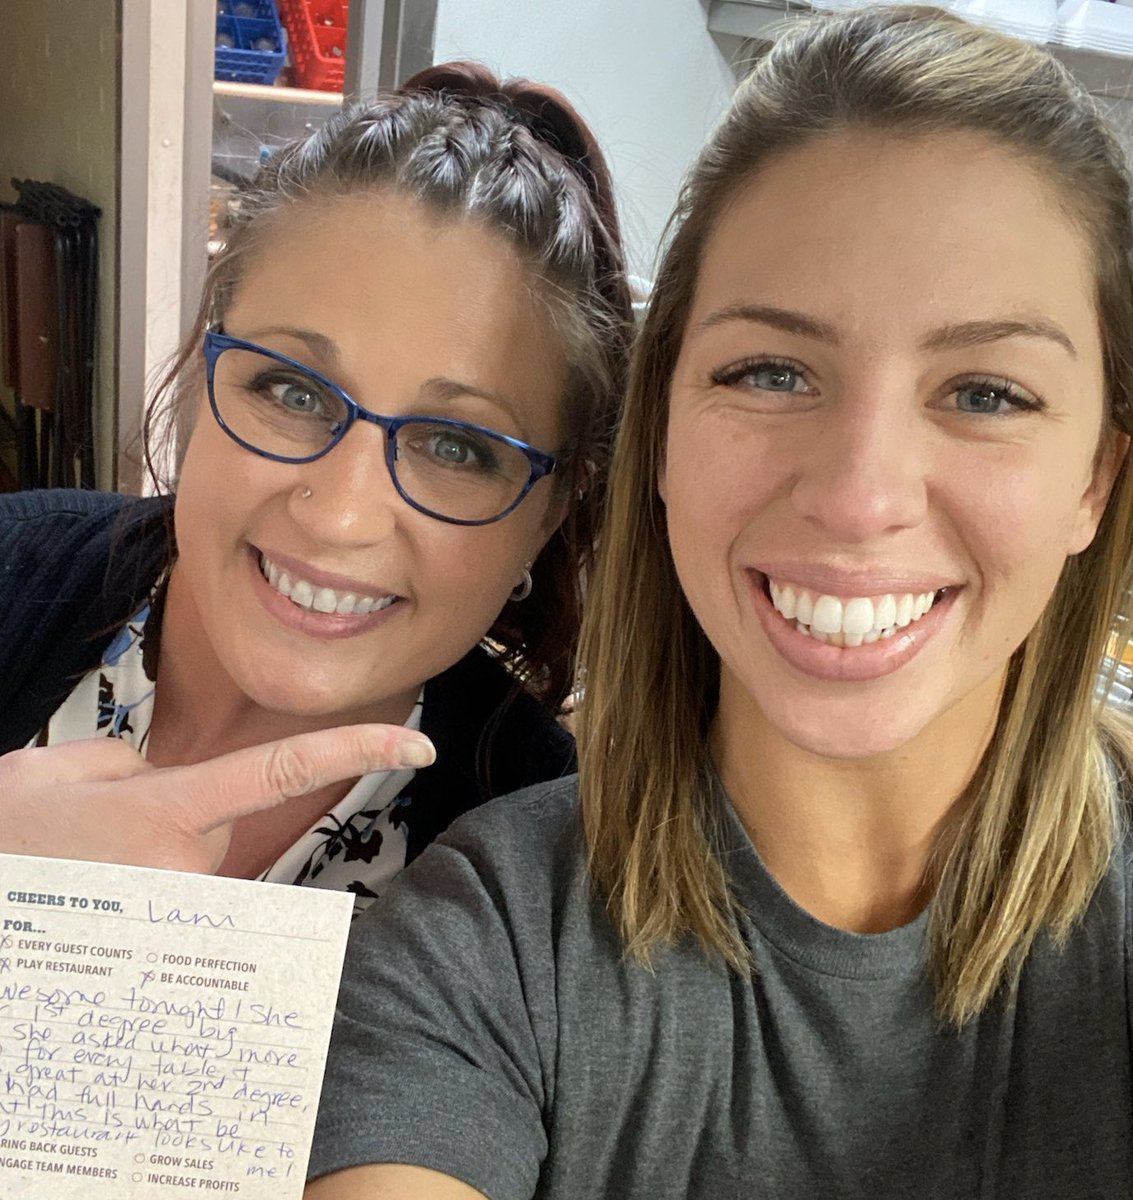 CHEERS TO YOU, Lani
FOR...
EVERY GUEST COUNTS FOOD PERFECTION
PLAY RESTAURANT BE ACCOUNTABLE
wesome tonight! She
1st degree by
she asked what more
for every table +
great at her 2nd degree,
had full hands in
this is what be
restaurant looks like to
me!
RING BACK GUESTS GROW SALES
NGAGE TEAM MEMBERS INCREASE PROFITS